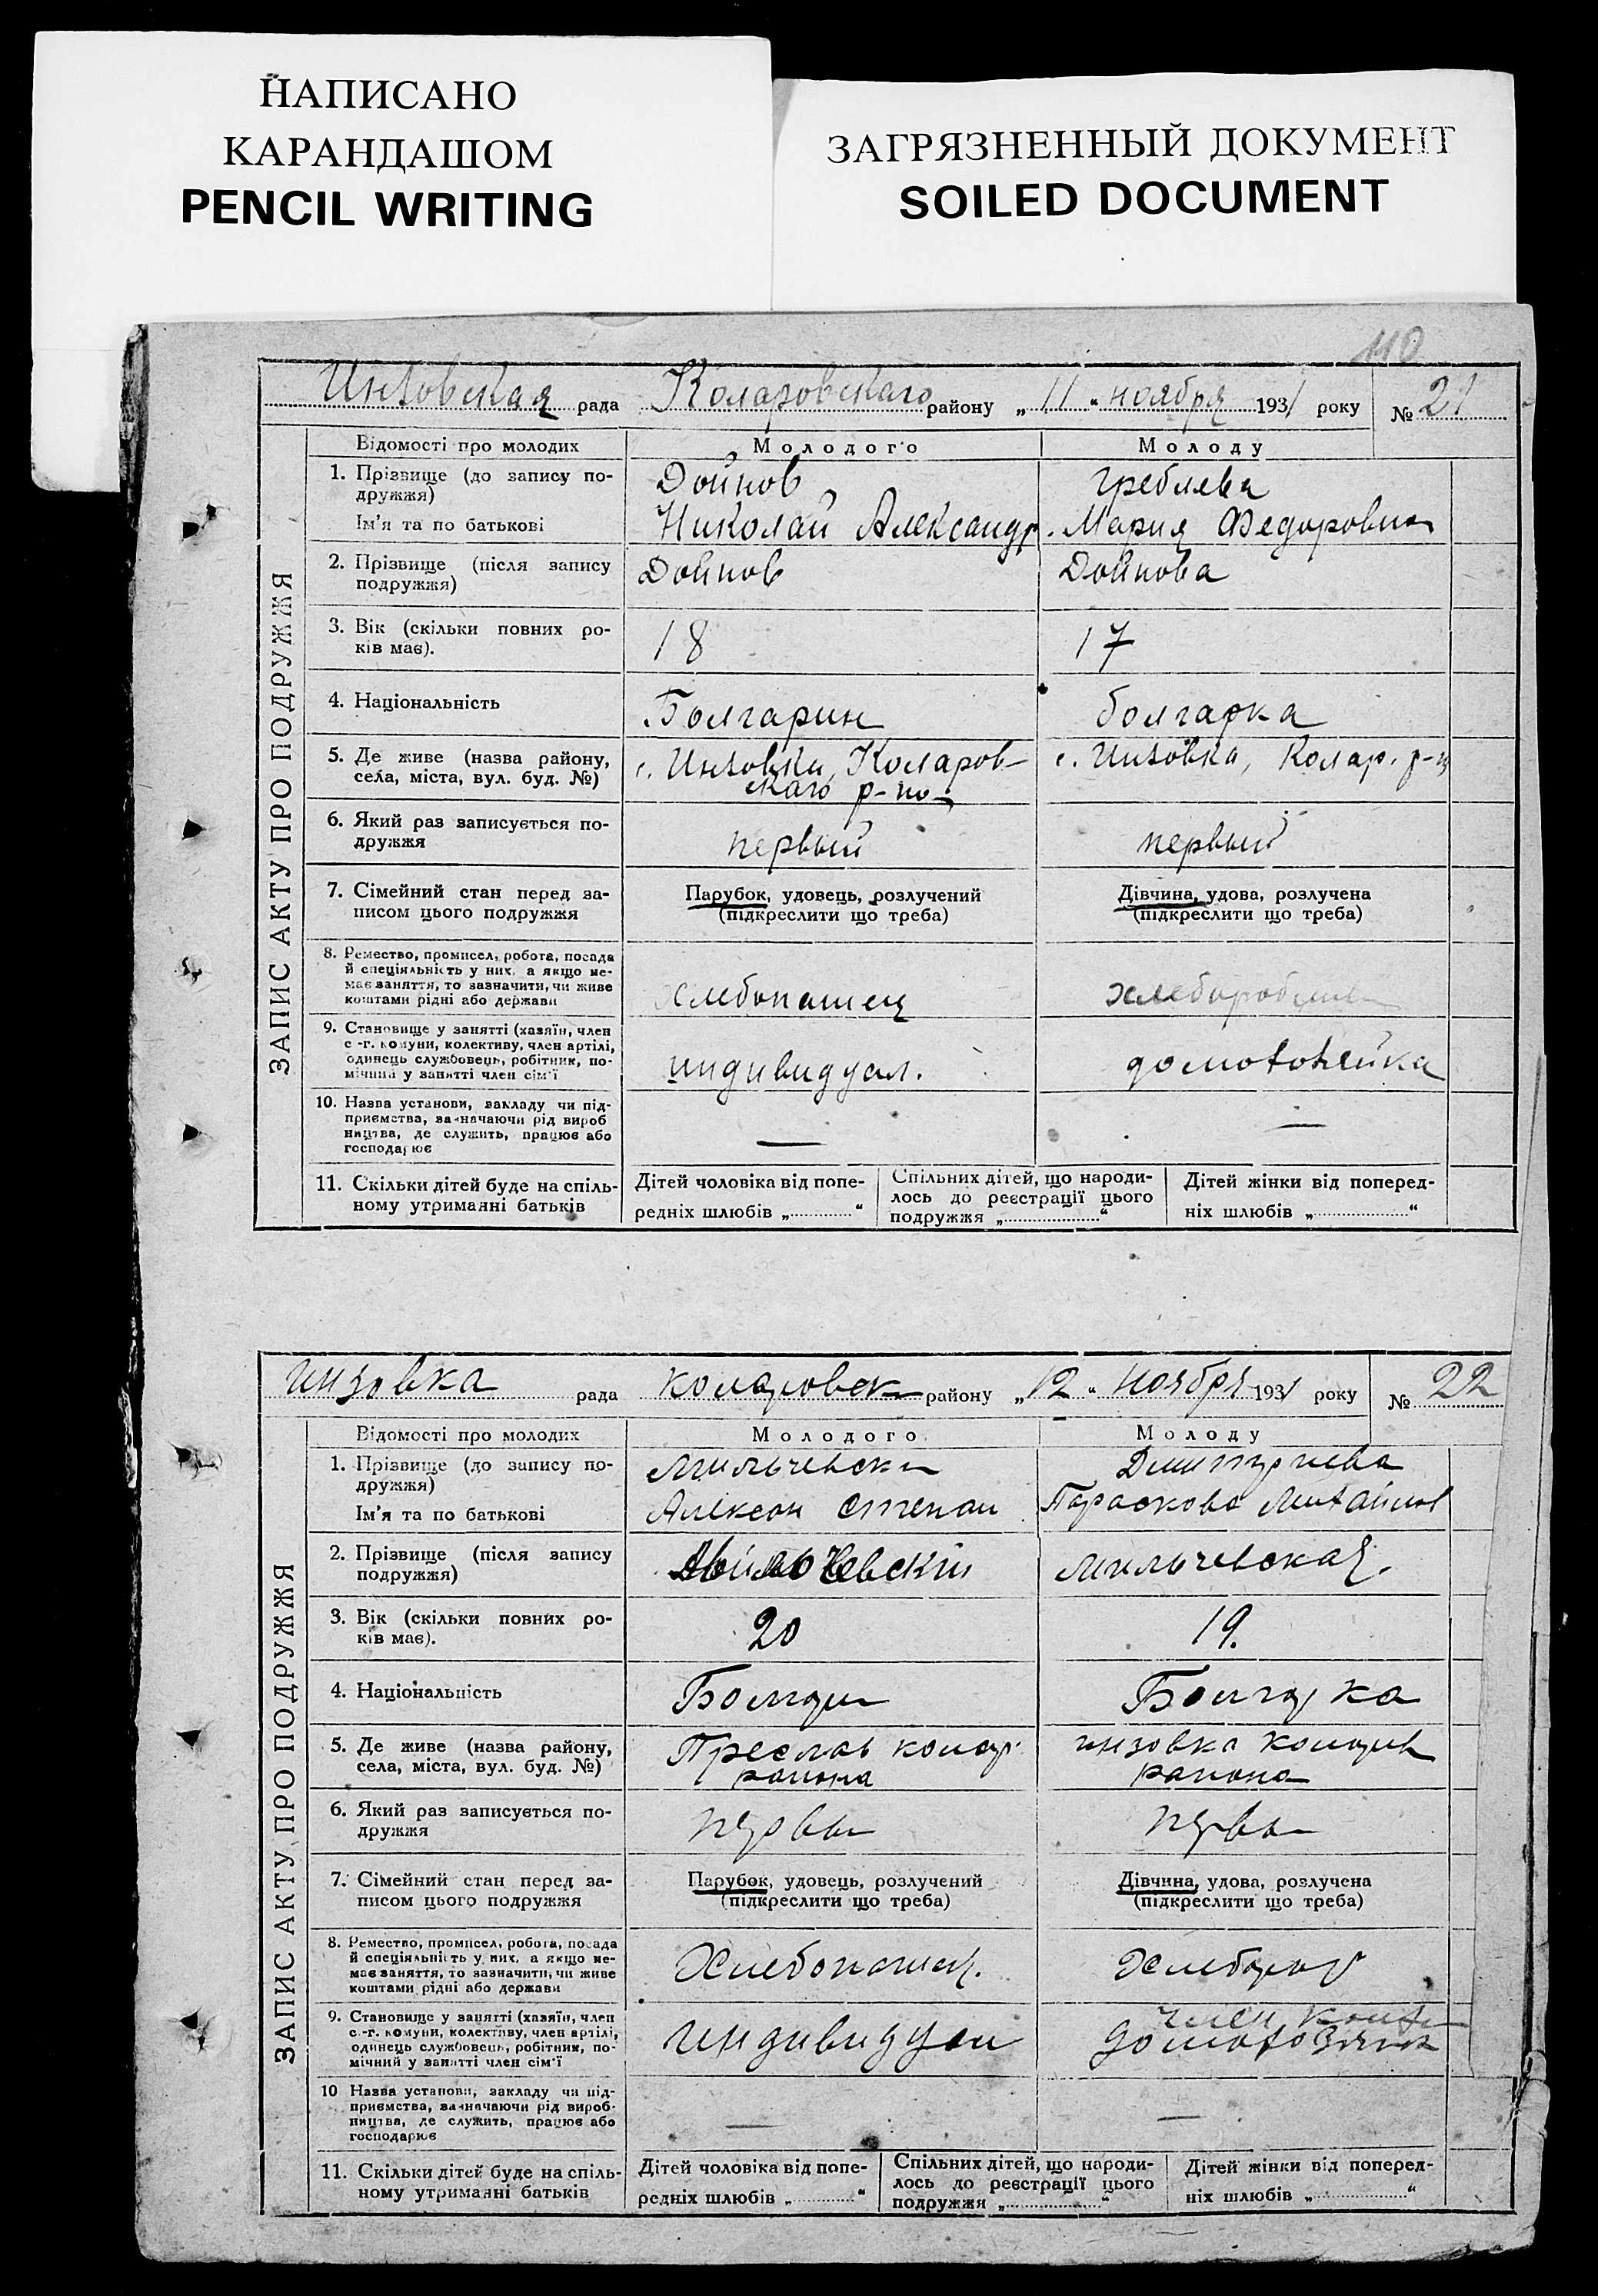 НАПИСАНО
КАРАНДАШОМ
PENCIL WRITING
ЗАГРЯЗНЕННЫЙ ДОКУМЕНТ
SOILED DOCUMENT
110
Инзовская рада Коларовскаго району „ 11 “ ноября 1931 року № 21
ЗАПИС АКТУ ПРО ПОДРУЖЖЯ
Відомості про молодих Молодого Молоду
1. Прізвище (до запису по- Дойнов Греблева
дружжя)
Ім'я та по батькові Николай Александр. Мария Федоровна
2. Прізвище (після запису Дойнов Дойнова
подружжя)
3. Вік (скільки повних ро- 18 17
ків має).
4. Національність Болгарин болгарка
5. Де живе (назва району, с. Инзовки, Коларов- с. Инзовка, Колар. р-н
села, міста, вул. буд. №) скаго р-но
6. Який раз записується по- первый первый
дружжя
7. Сімейний стан перед за- Парубок, удовець, розлучений Дівчина, удова, розлучена
писом цього подружжя (підкреслити що треба) (підкреслити що треба)
8. Ремество, промисел, робота, посада
й спеціяльність у них, а якщо не-
має заняття, то зазначити, чи живе хлебопашец
коштами рідні або держави
9. Становище у занятті (хазяїн, член
с.-г. комуни, колективу, член артілі,
одинець службовець, робітник, по- индивидуал. домохозяйка
мічний у занятті член сім'ї
10. Назва установи, закладу чи під-
приємства, зазначаючи рід вироб
ництва, де служить, працює або — —
господарює
11. Скільки дітей буде на спіль- Дітей чоловіка від попе- Спільних дітей, що народи- Дітей жінки від поперед-
ному утриманні батьків редніх шлюбів „ “ лось до реєстрації цього ніх шлюбів „ “
подружжя „ “
инзовка рада коларовск району „ 12 “ ноября 1931 року № 22
ЗАПИС АКТУ ПРО ПОДРУЖЖЯ
Відомості про молодих Молодого Молоду
1. Прізвище (до запису по- Мильчевски Димитриева
дружжя)
Ім'я та по батькові Алексан Степан Параскова Михайлов
2. Прізвище (після запису Мильчевский Мильчевская.
подружжя)
3. Вік (скільки повних ро- 20 19.
ків має).
4. Національність Болгари Болгарка
5. Де живе (назва району, Преслав колар инзовка коларов
села, міста, вул. буд. №) района района
6. Який раз записується по- первы первы
дружжя
7. Сімейний стан перед за- Парубок, удовець, розлучений Дівчина, удова, розлучена
писом цього подружжя (підкреслити що треба) (підкреслити що треба)
8. Ремество, промисел, робота, посада
й спеціяльність у них, а якщо не-
має заняття, то зазначити, чи живе Хлебопашец. Хлебороб
коштами рідні або держави
9. Становище у занятті (хазяїн, член член
с.-г. комуни, колективу, член артілі,
одинець службовець, робітник, по- индивидуал домохозяйк
мічний у занятті член сім'ї
10 Назва установи, закладу чи під-
приємства, зазначаючи рід вироб-
ництва, де служить, працює або — —
господарює
11. Скільки дітей буде на спіль- Дітей чоловіка від попе- Спільних дітей, що народи- Дітей жінки від поперед-
ному утриманні батьків редніх шлюбів „ “ лось до реєстрації цього ніх шлюбів „ “
подружжя „ “